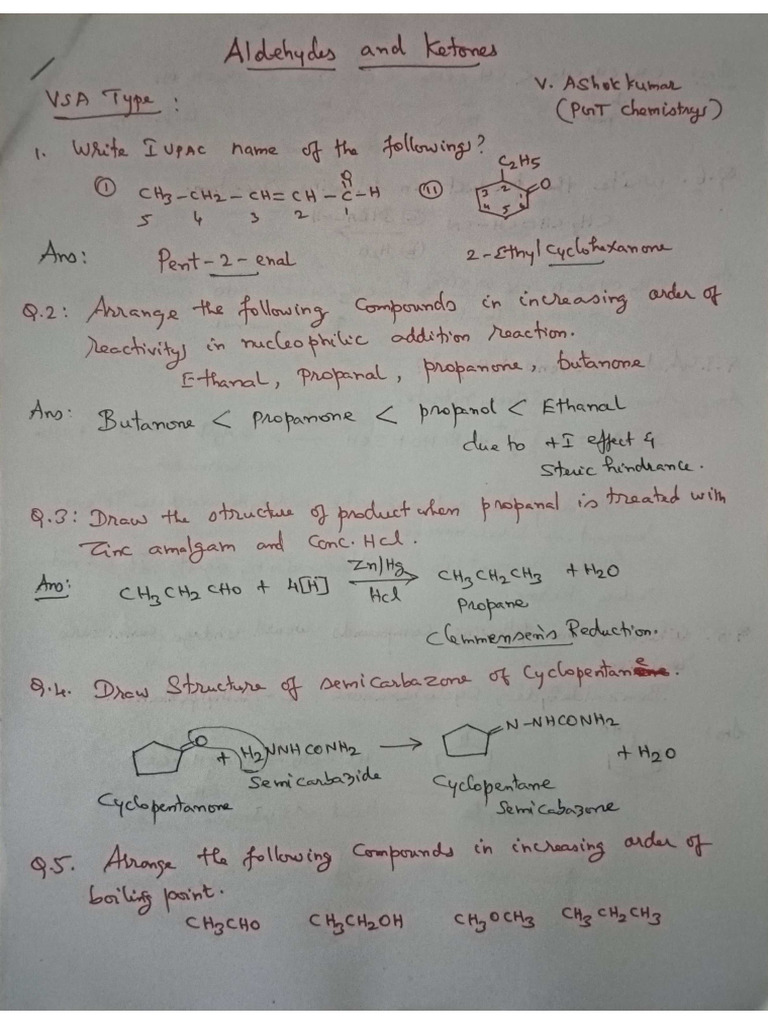 Aldehydes and Ketones
VSA Type :
V. Ashok kumar
(PGT chemistry)
1. Write IUPAC name of the following?
① CH3-CH2-CH=CH-C-H
O
5 4 3 2 1
⑪
C2H5
O
3 2 1
4 5 6
Ans: Pent-2-enal
2-Ethylcyclohexanone
Q.2: Arrange the following Compounds in increasing order of
reactivity in nucleophilic addition reaction.
Ethanal, Propanal, propanone, butanone
Ans: Butanone < Propanone < propanol < Ethanal
due to +I effect &
Steric hindrance.
Q.3: Draw the structure of product when propanal is treated with
Zinc amalgam and Conc. Hcl.
Ans: CH3CH2CHO + 4[H] Zn/Hg → Hcl CH3CH2CH3 + H2O
Propane
Clemmensen's Reduction.
Q.4. Draw Structure of semicarbazone of Cyclopentane.
O + H2NNHCONH2 → N-NHCONH2
+ H2O
Semicarbazide
Cyclopentanone
Cyclopentane
Semicabazone
Q.5. Arrange the following Compounds in increasing order of
boiling point.
CH3CHO CH3CH2OH CH3OCH3 CH3CH2CH3